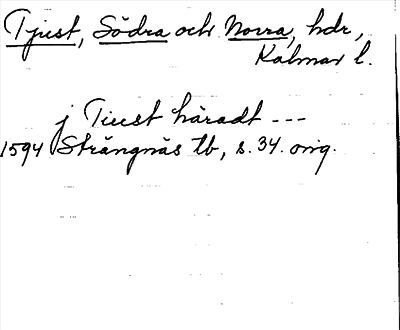 Tjust, Södra och Norra, hdr,
Kalmar l.
j Tiust häradt ---
1594 Strängnäs tb, s. 34. orig.